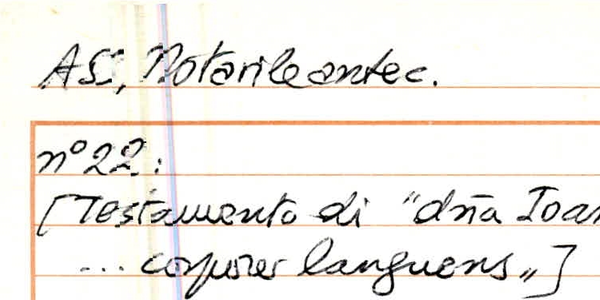 ASS, Notarile antec.
n° 22:
[Testamento di "dña Ioan
... corpore languens"]